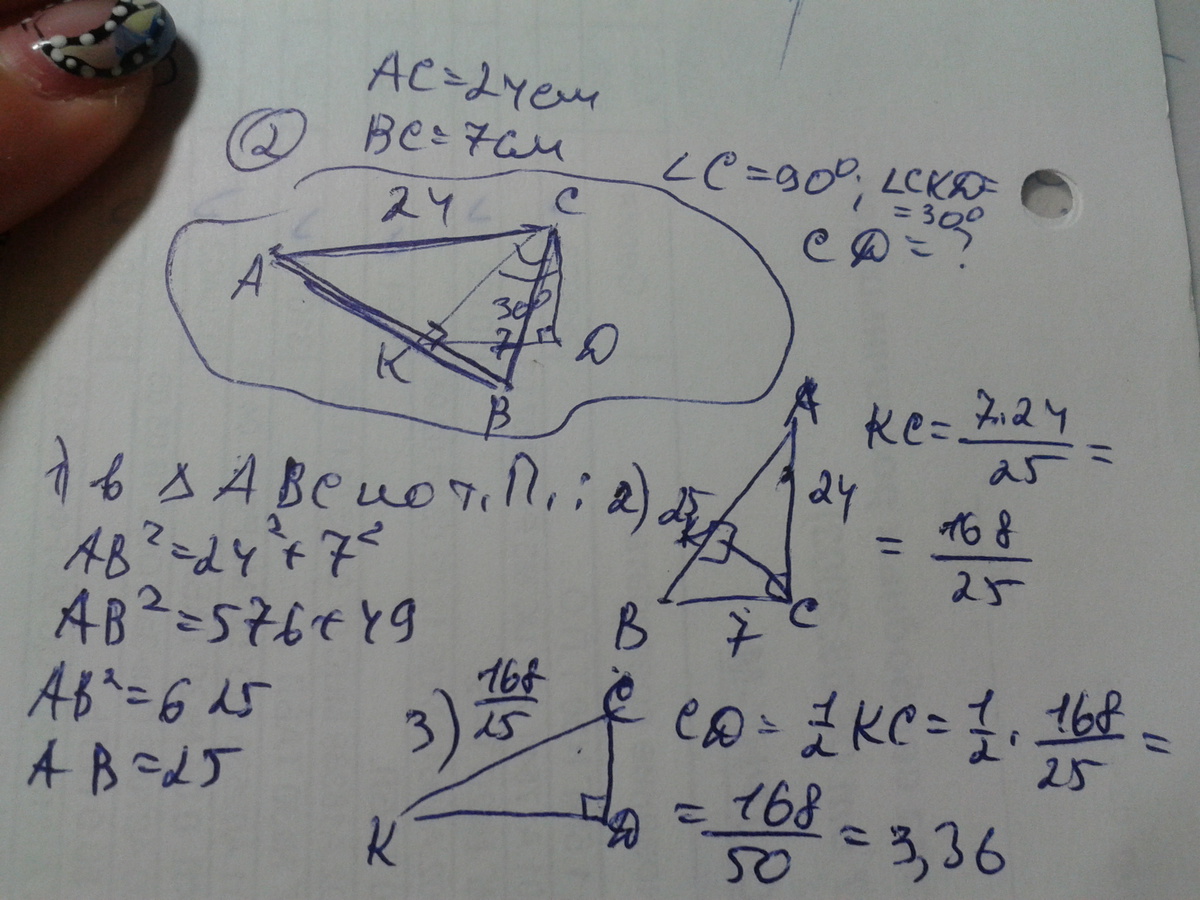 AC=24см
②
BC=7см
∠C=90°; ∠CKD=
=30°
CD=?
24
C
A
30°
7
K
D
B
1) в △ABC по т. П.:
AB²=24²+7²
AB²=576+49
AB²=625
AB=25
2)
A
25
24
K
B
7
C
KC=7·24/25=
=168/25
3)
168/25
C
K
D
CD=1/2KC=1/2·168/25=
=168/50=3,36